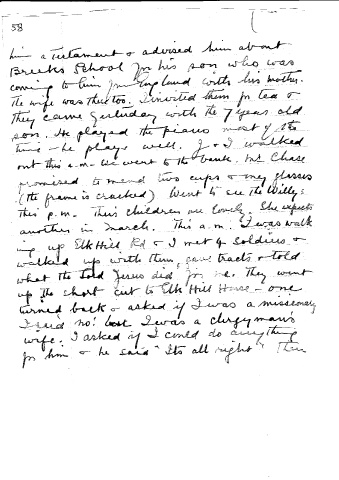 58
him a Testament & advised him about
Breeks School for his son who was
coming to him from England with his mother.
The wife was there too. I invited them for tea &
they came yesterday with the 7 years old
son. He played the piano most of the
time - he plays well. J & I walked
out this a.m. We went to the bank. Mr. Chase
promised to mend two cups & my glasses
(the frame is cracked) Went to see the Willeys
this p.m. Their children are lovely. She expects
another in March. This a.m. I was walk
ing up Elk Hill Rd & I met 4 soldiers &
walked up with them, gave tracts & told
what the Lord Jesus did for me. They went
up the short cut to Elk Hill House - one
turned back & asked if I was a missionary
I said no! but I was a clergyman's
wife. I asked if I could do anything
for him & he said "Its all right" Then